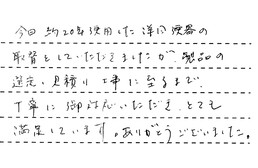 今回約20年使用した洋風便器の
取替をしていただきましたが、製品の
選定、見積り工事に至るまで、
丁寧に御対応いただき、とても
満足しています。ありがとうございました。